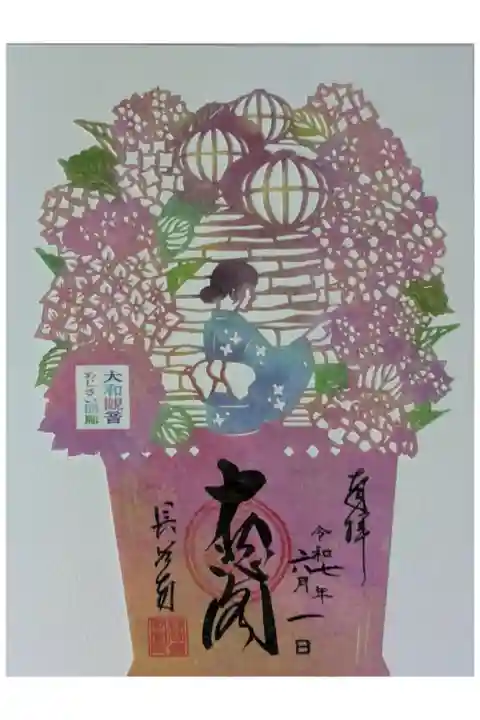 大和観音
あじさい回廊
奉拝
令和七年
六月一日
大悲閣
長谷寺